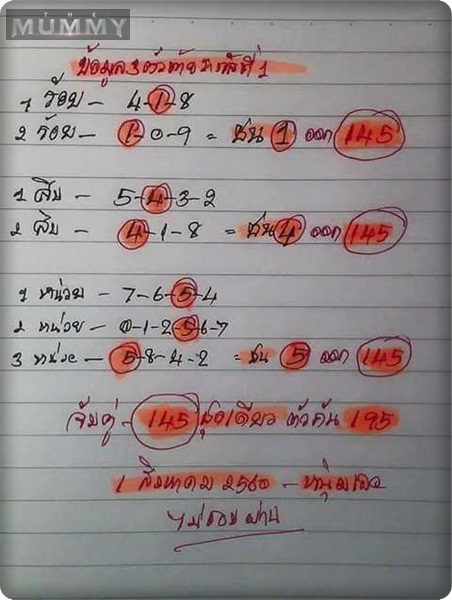 MUMMY
ข้อมูล 3 ตัวท้ายรางวัลที่ 1
1 ร้อย - 4-1-8
2 ร้อย - 1-0-9 = ชน 1 ออก 145
1 สิบ - 5-4-3-2
2 สิบ - 4-1-8 = ชน 4 ออก 145
1 หน่วย - 7-6-5-4
2 หน่วย - 0-1-2-5-6-7
3 หน่วย - 5-8-4-2 = ชน 5 ออก 145
จับคู่ - 145 ชุดเดียว ตัวคัน 195
1 สิงหาคม 2560 - หนุ่ม